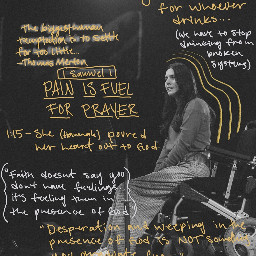 for whoever
drinks...
(we have to stop
drinking from
broken
systems)
The biggest human
temptation is to settle
for too little...
-Thomas Merton
1 Samuel 1
PAIN IS FUEL
FOR PRAYER
1:15 - She (Hannah) poured
her heart out to God
"Faith doesnt say you
dont have feelings
its feeling them in
the presence of God"
"Desperation and weeping in the
presence of God is NOT